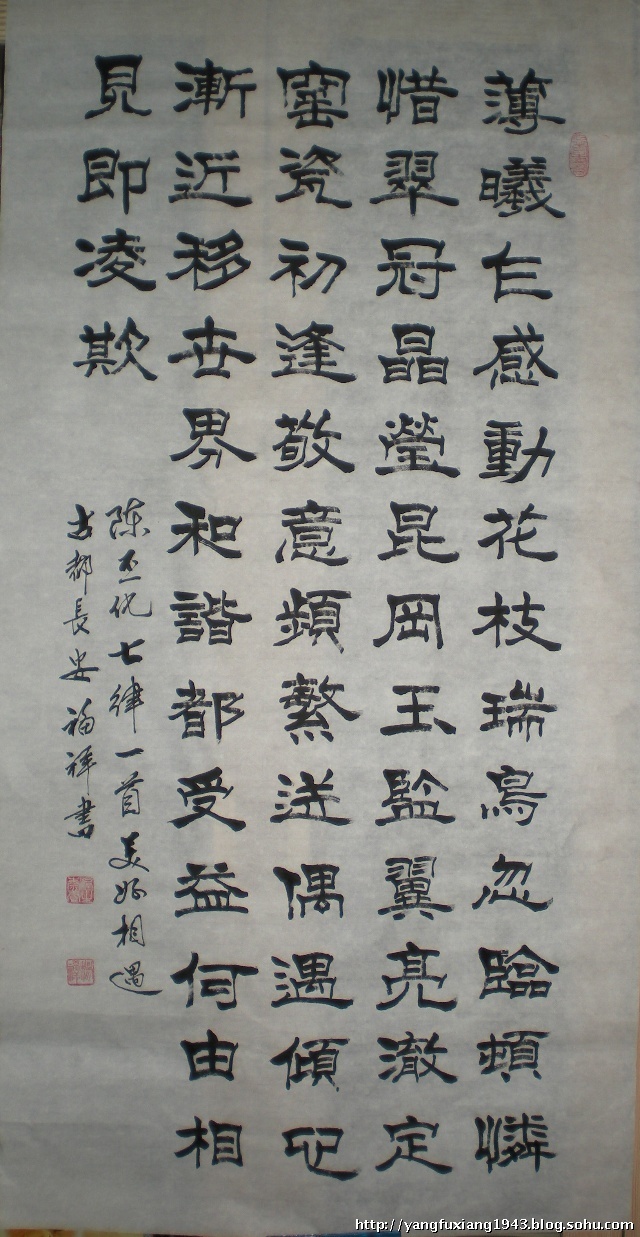 薄曦乍感動花枝瑞鳥忽臨頓憐
惜翠冠晶瑩昆岡玉監翼亮澈定
窑瓷初逢敬意頻繁送偶遇傾心
漸近移世界和諧都受益何由相
見即凌欺
陈丕代七律一首美好相遇
古都長安福祥書
http://yangfuxiang1943.blog.sohu.com